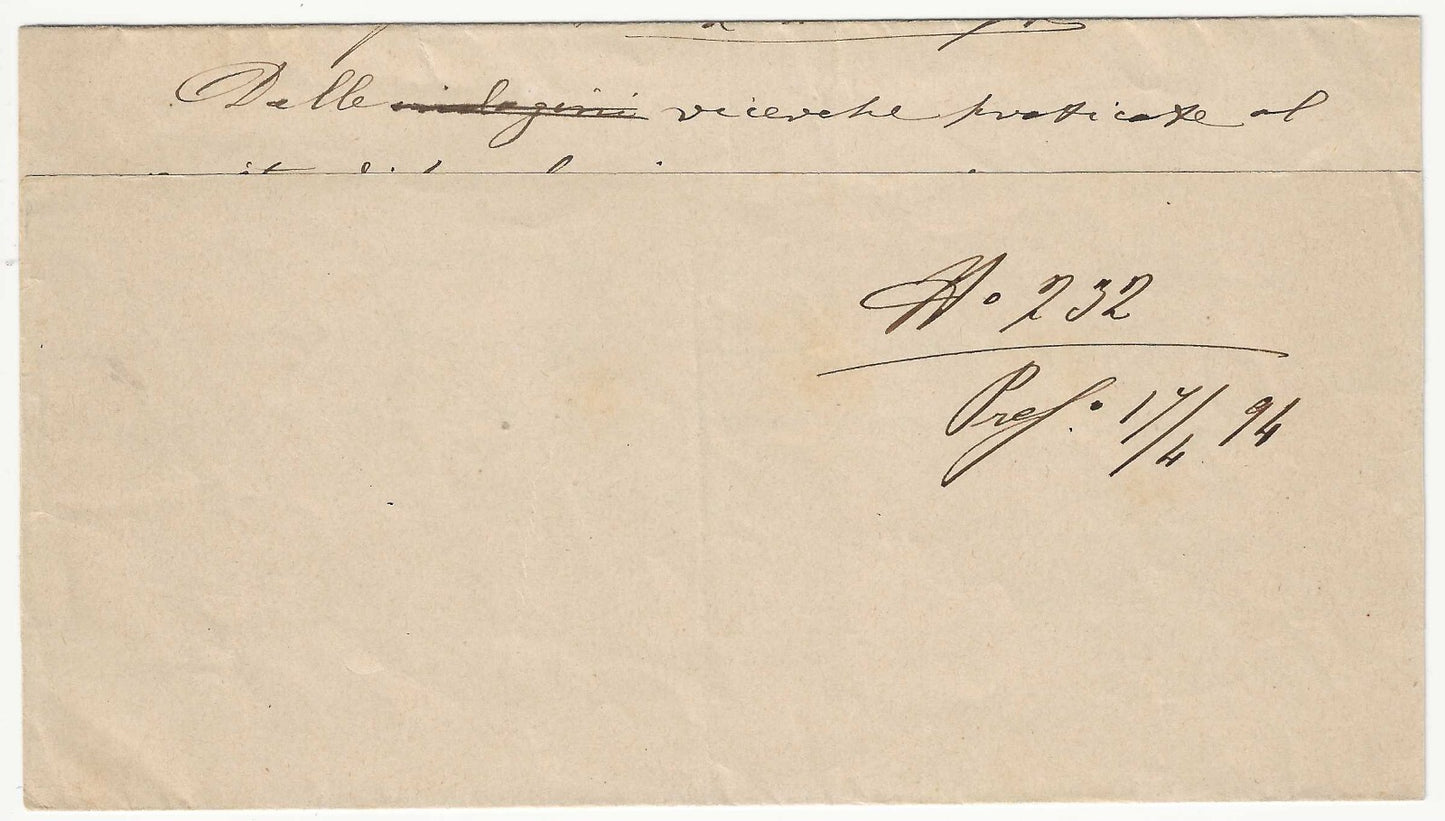 Dalle indagini ricerche praticate al
No 232
Pref. 17/4 94